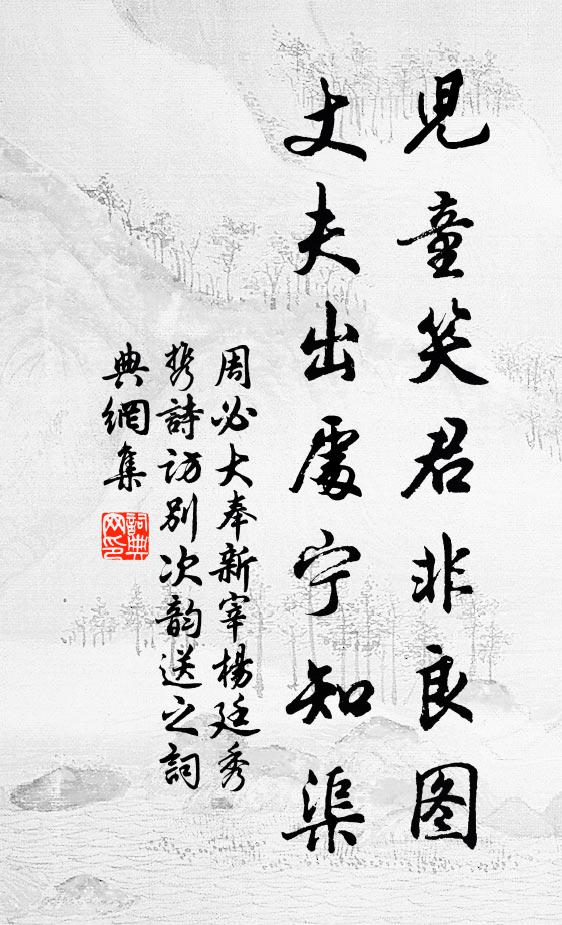 児童笑君非良图
丈夫出處宁知渠
周必大奉新宰楊廷秀
携詩访別次韵送之詞
典網集
詞典网印